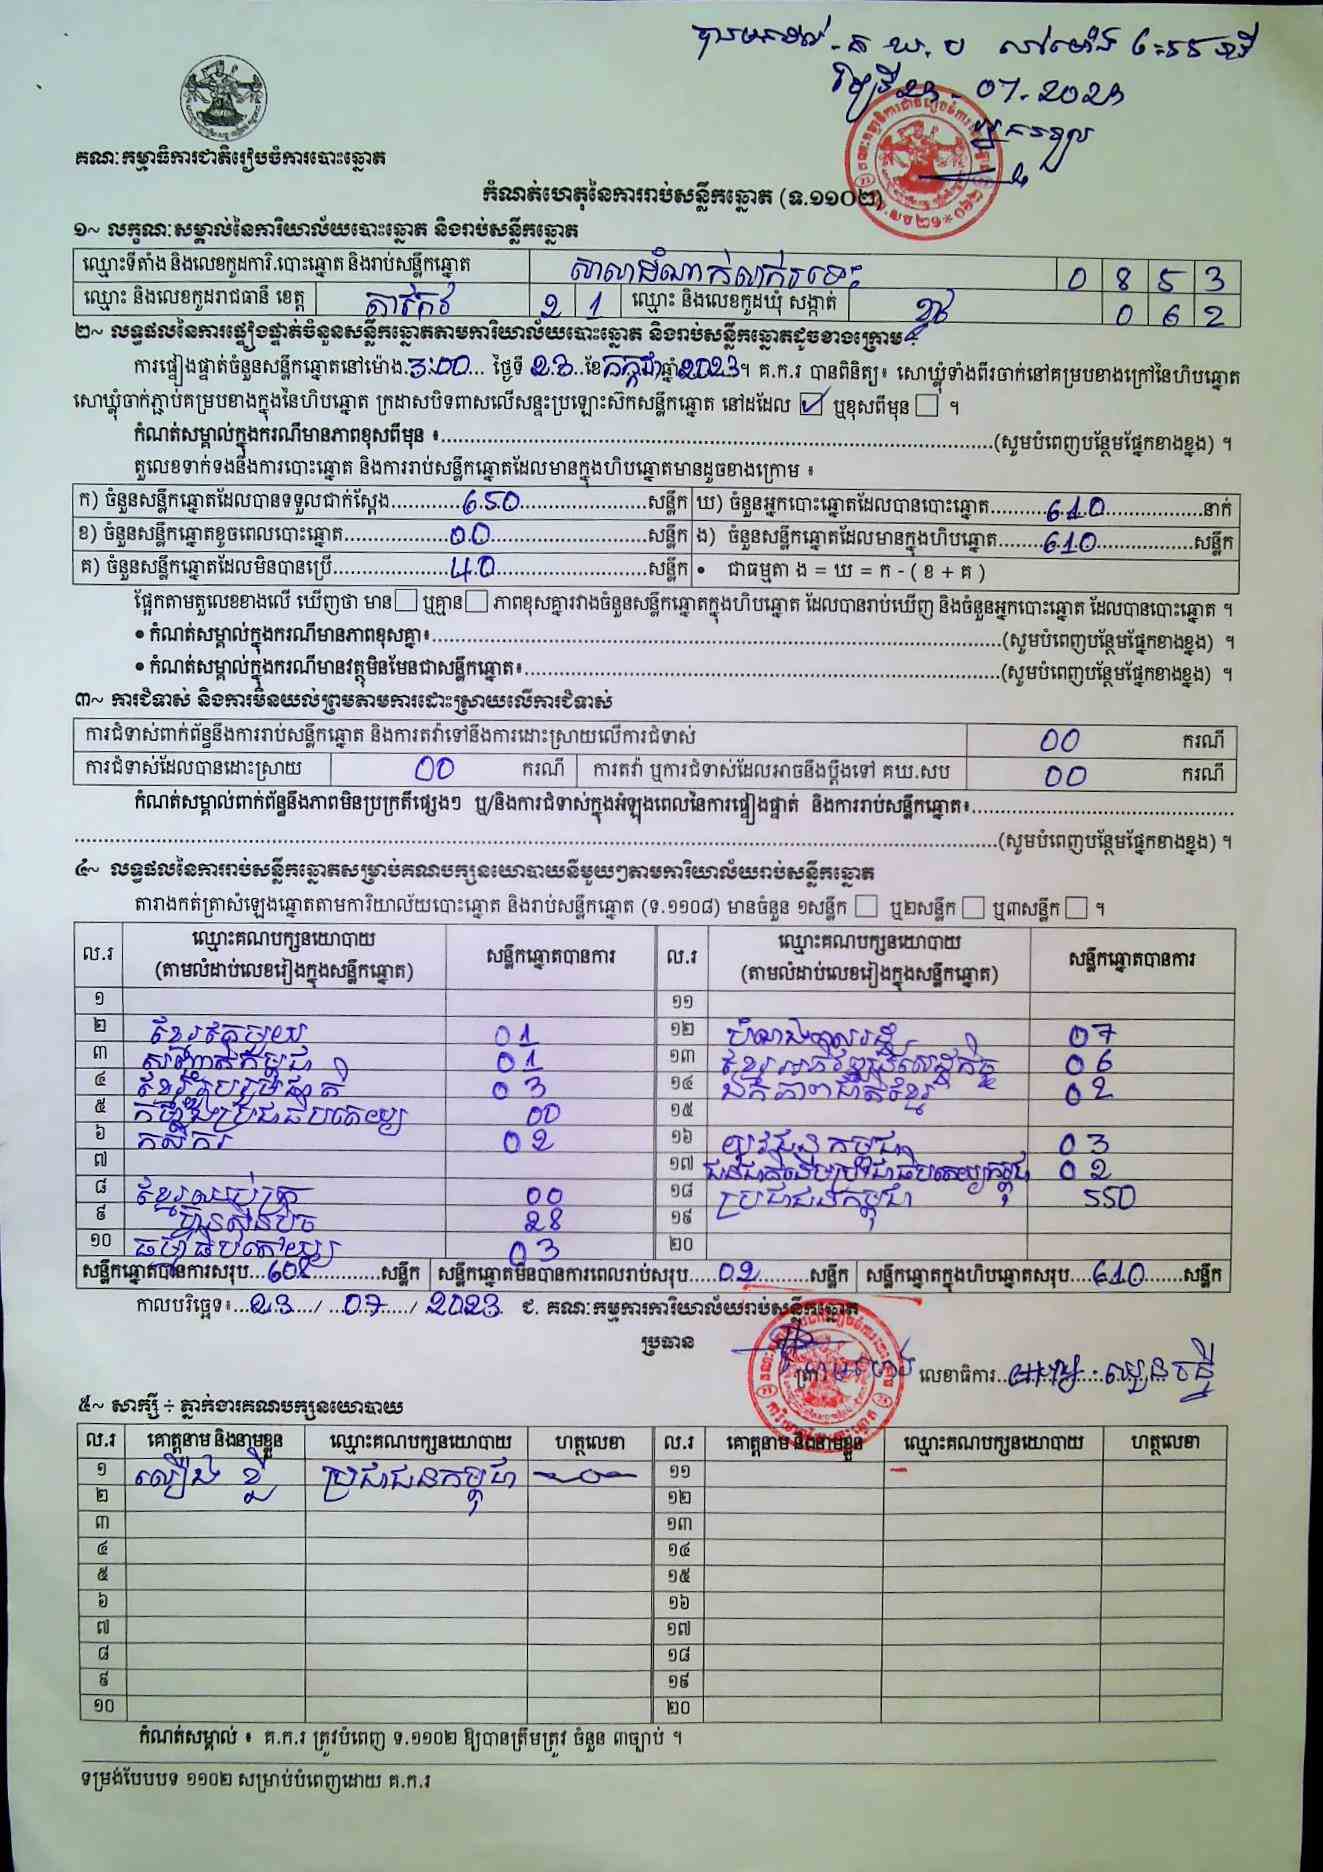 07.2023
គណៈកម្មាធិការជាតិរៀបចំការបោះឆ្នោត
កំណត់ហេតុនៃការរាប់សន្លឹកឆ្នោត (ទ.១១០២)
១~ លក្ខណៈសម្គាល់នៃការិយាល័យបោះឆ្នោត និងរាប់សន្លឹកឆ្នោត
ឈ្មោះទីតាំង និងលេខកូដការិ.បោះឆ្នោត និងរាប់សន្លឹកឆ្នោត 0 8 5 3
ឈ្មោះ និងលេខកូដរាជធានី ខេត្ត តាកែវ 2 1 ឈ្មោះ និងលេខកូដឃុំ សង្កាត់ 0 6 2
២~ លទ្ធផលនៃការផ្ទៀងផ្ទាត់ចំនួនសន្លឹកឆ្នោតតាមការិយាល័យបោះឆ្នោត និងរាប់សន្លឹកឆ្នោតដូចខាងក្រោម៖
ការផ្ទៀងផ្ទាត់ចំនួនសន្លឹកឆ្នោតនៅម៉ោង.3:00... ថ្ងៃទី 23 ខែ កក្កដា ឆ្នាំ 2023។ គ.ក.រ បានពិនិត្យ៖ សោឃ្លុំទាំងពីរចាក់នៅគម្របខាងក្រៅនៃហិបឆ្នោត
សោឃ្លុំចាក់ភ្ជាប់គម្របខាងក្នុងនៃហិបឆ្នោត ក្រដាសបិទពាសលើសន្ទះប្រឡោះស៊កសន្លឹកឆ្នោត នៅដដែល ☑ ឬខុសពីមុន ☐ ។
កំណត់សម្គាល់ក្នុងករណីមានភាពខុសពីមុន ៖......(សូមបំពេញបន្ថែមផ្នែកខាងខ្នង) ។
តួលេខទាក់ទងនឹងការបោះឆ្នោត និងការរាប់សន្លឹកឆ្នោតដែលមានក្នុងហិបឆ្នោតមានដូចខាងក្រោម ៖
ក) ចំនួនសន្លឹកឆ្នោតដែលបានទទួលជាក់ស្តែង......650......សន្លឹក ឃ) ចំនួនអ្នកបោះឆ្នោតដែលបានបោះឆ្នោត......610......នាក់
ខ) ចំនួនសន្លឹកឆ្នោតខូចពេលបោះឆ្នោត......00......សន្លឹក ង) ចំនួនសន្លឹកឆ្នោតដែលមានក្នុងហិបឆ្នោត......610......សន្លឹក
គ) ចំនួនសន្លឹកឆ្នោតដែលមិនបានប្រើ......40......សន្លឹក • ជាធម្មតា ង = ឃ = ក - ( ខ + គ )
ផ្អែកតាមតួលេខខាងលើ ឃើញថា មាន☐ ឬគ្មាន☐ ភាពខុសគ្នារវាងចំនួនសន្លឹកឆ្នោតក្នុងហិបឆ្នោត ដែលបានរាប់ឃើញ និងចំនួនអ្នកបោះឆ្នោត ដែលបានបោះឆ្នោត ។
• កំណត់សម្គាល់ក្នុងករណីមានភាពខុសគ្នា៖......(សូមបំពេញបន្ថែមផ្នែកខាងខ្នង) ។
• កំណត់សម្គាល់ក្នុងករណីមានវត្ថុមិនមែនជាសន្លឹកឆ្នោត៖......(សូមបំពេញបន្ថែមផ្នែកខាងខ្នង) ។
៣~ ការជំទាស់ និងការមិនយល់ព្រមតាមការដោះស្រាយលើការជំទាស់
ការជំទាស់ពាក់ព័ន្ធនឹងការរាប់សន្លឹកឆ្នោត និងការតវ៉ាទៅនឹងការដោះស្រាយលើការជំទាស់ 00 ករណី
ការជំទាស់ដែលបានដោះស្រាយ 00 ករណី ការតវ៉ា ឬការជំទាស់ដែលអាចនឹងប្តឹងទៅ គឃ.សប 00 ករណី
កំណត់សម្គាល់ពាក់ព័ន្ធនឹងភាពមិនប្រក្រតីផ្សេងៗ ឬ/និងការជំទាស់ក្នុងអំឡុងពេលនៃការផ្ទៀងផ្ទាត់ និងការរាប់សន្លឹកឆ្នោត៖......
......(សូមបំពេញបន្ថែមផ្នែកខាងខ្នង) ។
៤~ លទ្ធផលនៃការរាប់សន្លឹកឆ្នោតសម្រាប់គណបក្សនយោបាយនីមួយៗតាមការិយាល័យរាប់សន្លឹកឆ្នោត
តារាងកត់ត្រាសំឡេងឆ្នោតតាមការិយាល័យបោះឆ្នោត និងរាប់សន្លឹកឆ្នោត (ទ.១១០៨) មានចំនួន ១សន្លឹក ☐ ឬ២សន្លឹក ☐ ឬ៣សន្លឹក ☐ ។
ល.រ ឈ្មោះគណបក្សនយោបាយ (តាមលំដាប់លេខរៀងក្នុងសន្លឹកឆ្នោត) សន្លឹកឆ្នោតបានការ ល.រ ឈ្មោះគណបក្សនយោបាយ (តាមលំដាប់លេខរៀងក្នុងសន្លឹកឆ្នោត) សន្លឹកឆ្នោតបានការ
១ ១១
២ ខ្មែរតែមួយ 01 ១២ 07
៣ សញ្ជាតិកម្ពុជា 01 ១៣ ខ្មែរអភិវឌ្ឍន៍សេដ្ឋកិច្ច 06
៤ ខ្មែររួបរួមជាតិ 03 ១៤ ឯកភាពជាតិខ្មែរ 02
៥ 00 ១៥
៦ កសិករ 02 ១៦ យុវជនកម្ពុជា 03
៧ ១៧ ជនជាតិដើមប្រជាធិបតេយ្យកម្ពុជា 02
៨ 00 ១៨ ប្រជាជនកម្ពុជា 550
៩ ហ្វ៊ុនស៊ិនប៉ិច 28 ១៩
១០ ធម្មាធិបតេយ្យ 03 ២០
សន្លឹកឆ្នោតបានការសរុប...608......សន្លឹក សន្លឹកឆ្នោតមិនបានការពេលរាប់សរុប.....02......សន្លឹក សន្លឹកឆ្នោតក្នុងហិបឆ្នោតសរុប....610......សន្លឹក
កាលបរិច្ឆេទ៖...23.../...07.../ 2023 ជ. គណៈកម្មការការិយាល័យរាប់សន្លឹកឆ្នោត
ប្រធាន
ត្រា លេខាធិការ......
៥~ សាក្សី ÷ ភ្នាក់ងារគណបក្សនយោបាយ
ល.រ គោត្តនាម និងនាមខ្លួន ឈ្មោះគណបក្សនយោបាយ ហត្ថលេខា ល.រ គោត្តនាម និងនាមខ្លួន ឈ្មោះគណបក្សនយោបាយ ហត្ថលេខា
១ ប្រជាជនកម្ពុជា ១១
២ ១២
៣ ១៣
៤ ១៤
៥ ១៥
៦ ១៦
៧ ១៧
៨ ១៨
៩ ១៩
១០ ២០
កំណត់សម្គាល់ ៖ គ.ក.រ ត្រូវបំពេញ ទ.១១០២ ឱ្យបានត្រឹមត្រូវ ចំនួន ៣ច្បាប់ ។
ទម្រង់បែបបទ ១១០២ សម្រាប់បំពេញដោយ គ.ក.រ